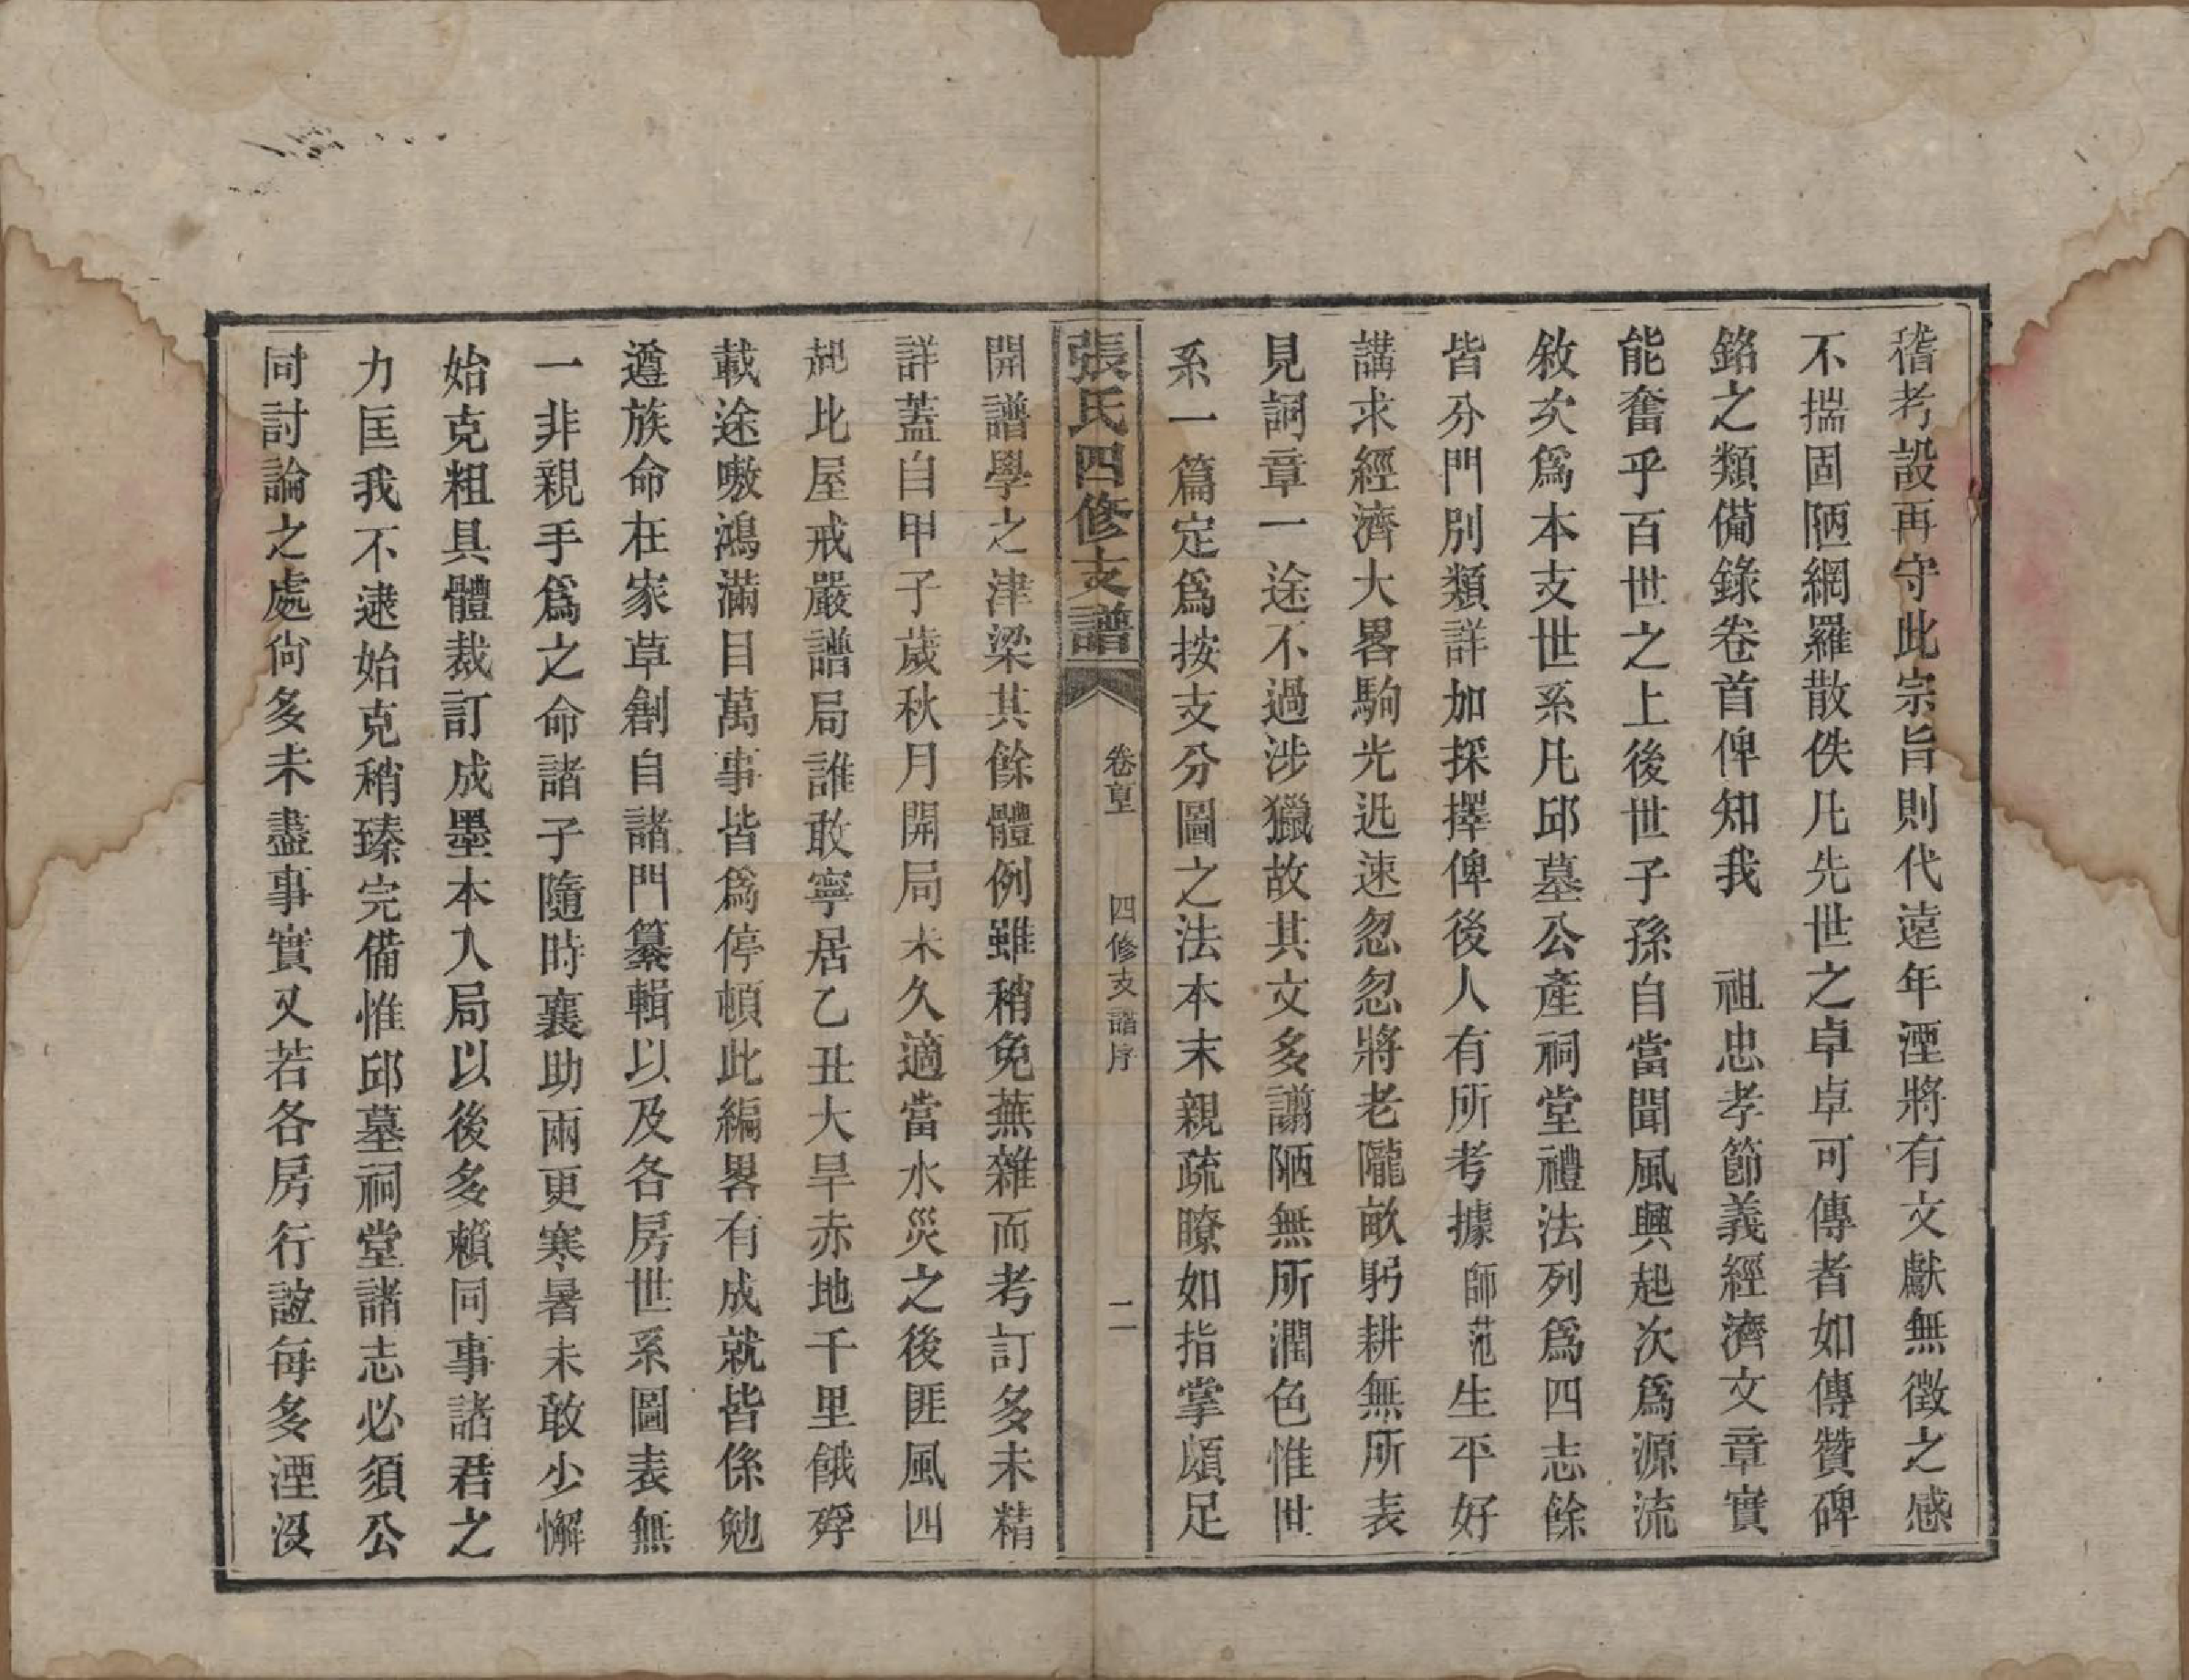 稽考設再守此宗旨則代遠年湮將有文獻無徵之感
不揣固陋網羅散佚凡先世之卓卓可傳者如傳贊碑
銘之類備錄卷首俾知我　祖忠孝節義經濟文章實
能奮乎百世之上後世子孫自當聞風興起次爲源流
敘次爲本支世系凡邱墓公產祠堂禮法列爲四志餘
皆分門別類詳加採擇俾後人有所考據師范生平好
講求經濟大畧駒光迅速忽忽將老隴畝躬耕無所表
見詞章一途不過涉獵故其文多謭陋無所潤色惟世
系一篇定爲按支分圖之法本末親疏瞭如指掌頗足
張氏四修支譜
卷首
四修支譜序
二
開譜學之津梁其餘體例雖稍免蕪雜而考訂多未精
詳蓋自甲子歲秋月開局未久適當水災之後匪風四
起比屋戒嚴譜局誰敢寧居乙丑大旱赤地千里餓殍
載途嗷鴻滿目萬事皆爲停頓此編畧有成就皆係勉
遵族命在家草創自諸門纂輯以及各房世系圖表無
一非親手爲之命諸子隨時襄助兩更寒暑未敢少懈
始克粗具體裁訂成墨本入局以後多賴同事諸君之
力匡我不逮始克稍臻完備惟邱墓祠堂諸志必須公
同討論之處尙多未盡事實又若各房行誼每多湮沒